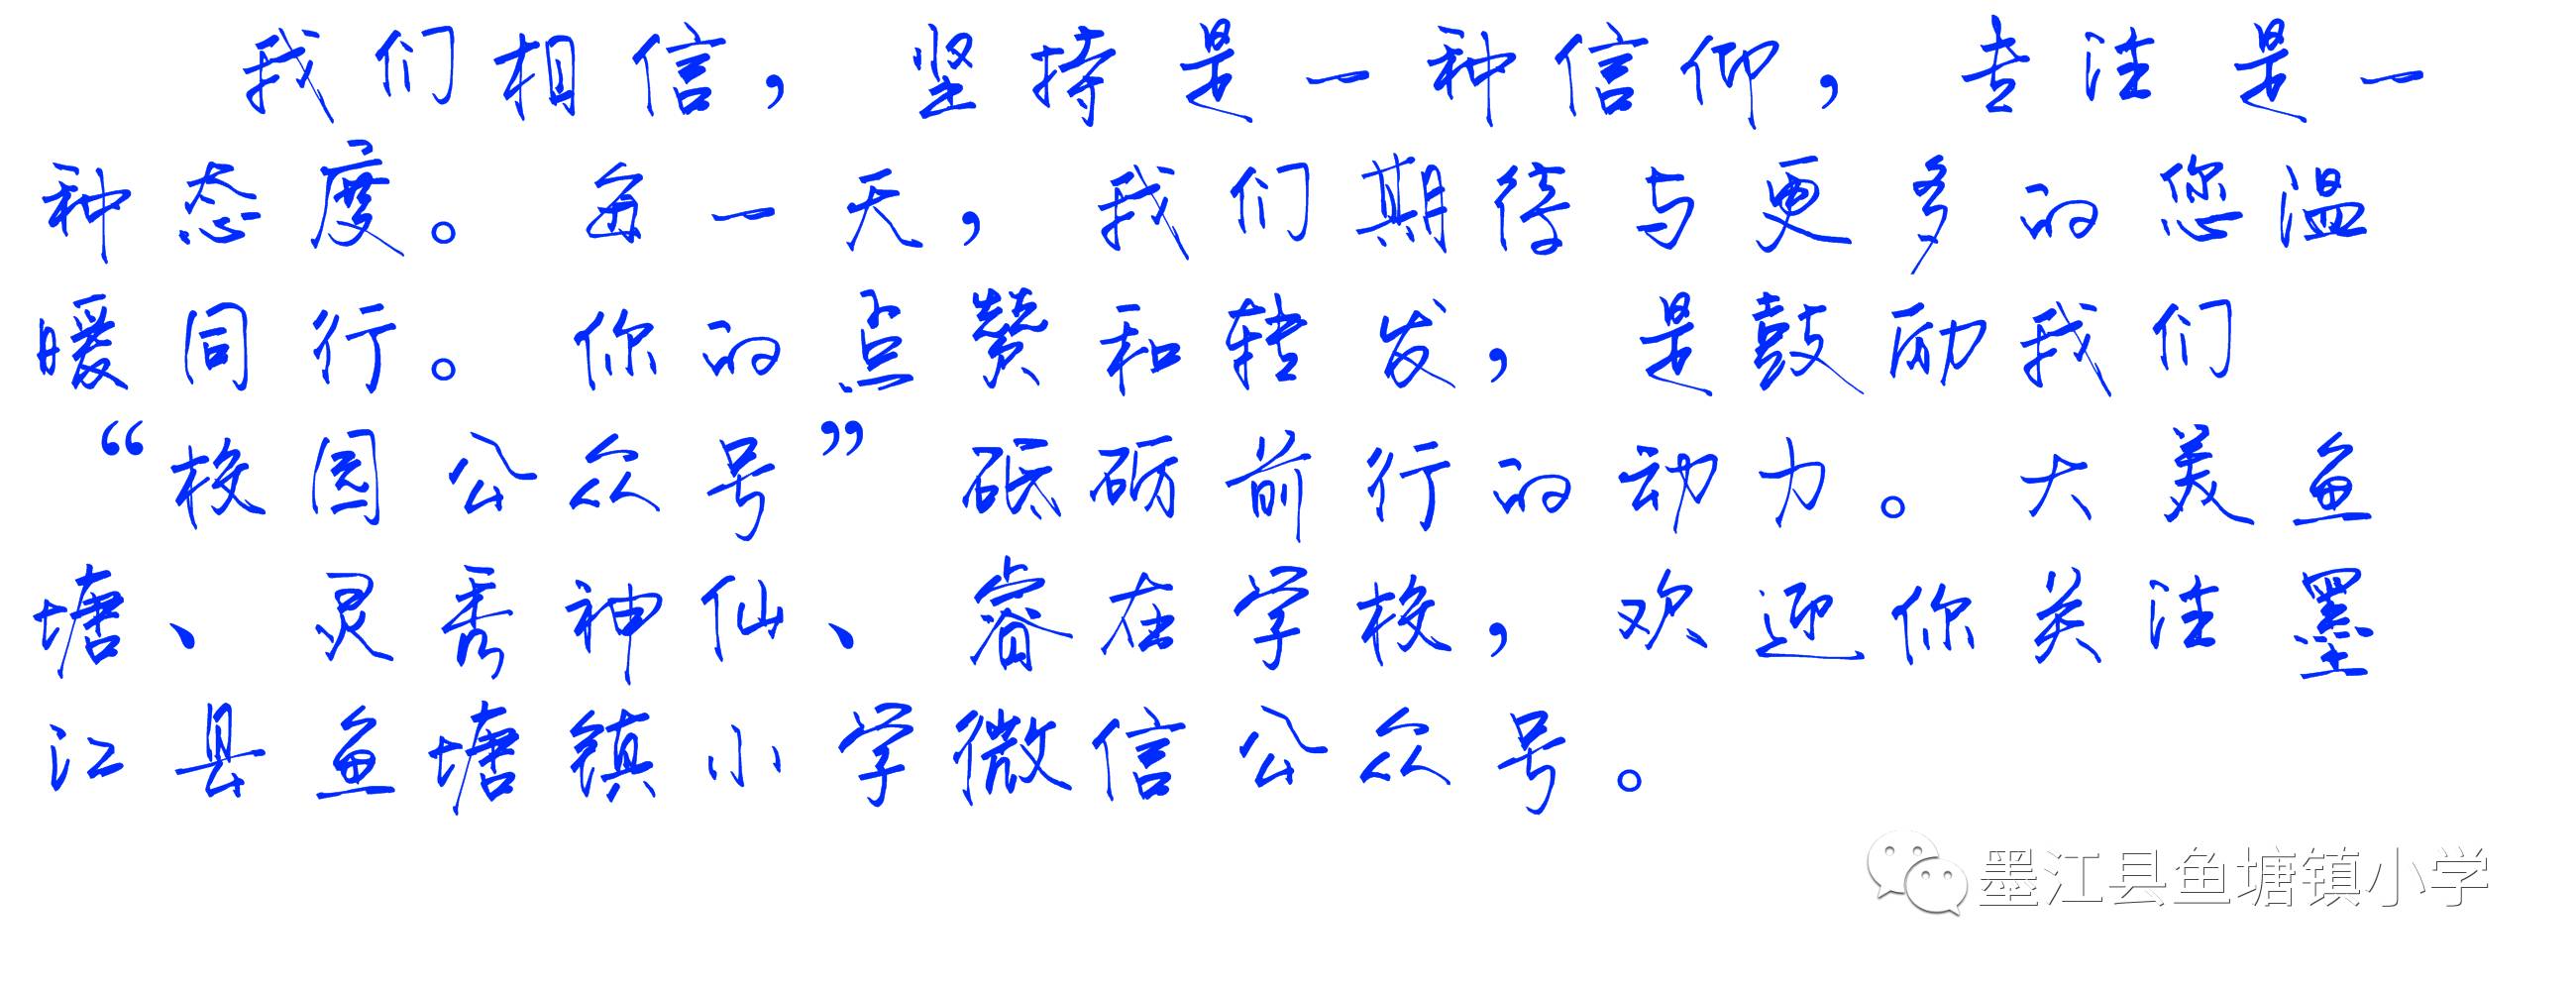 我们相信，坚持是一种信仰，专注是一
种态度。每一天，我们期待与更多的您温
暖同行。你的点赞和转发，是鼓励我们
“校园公众号”砥砺前行的动力。大美鱼
塘、灵秀神仙、睿在学校，欢迎你关注墨
江县鱼塘镇小学微信公众号。
墨江县鱼塘镇小学